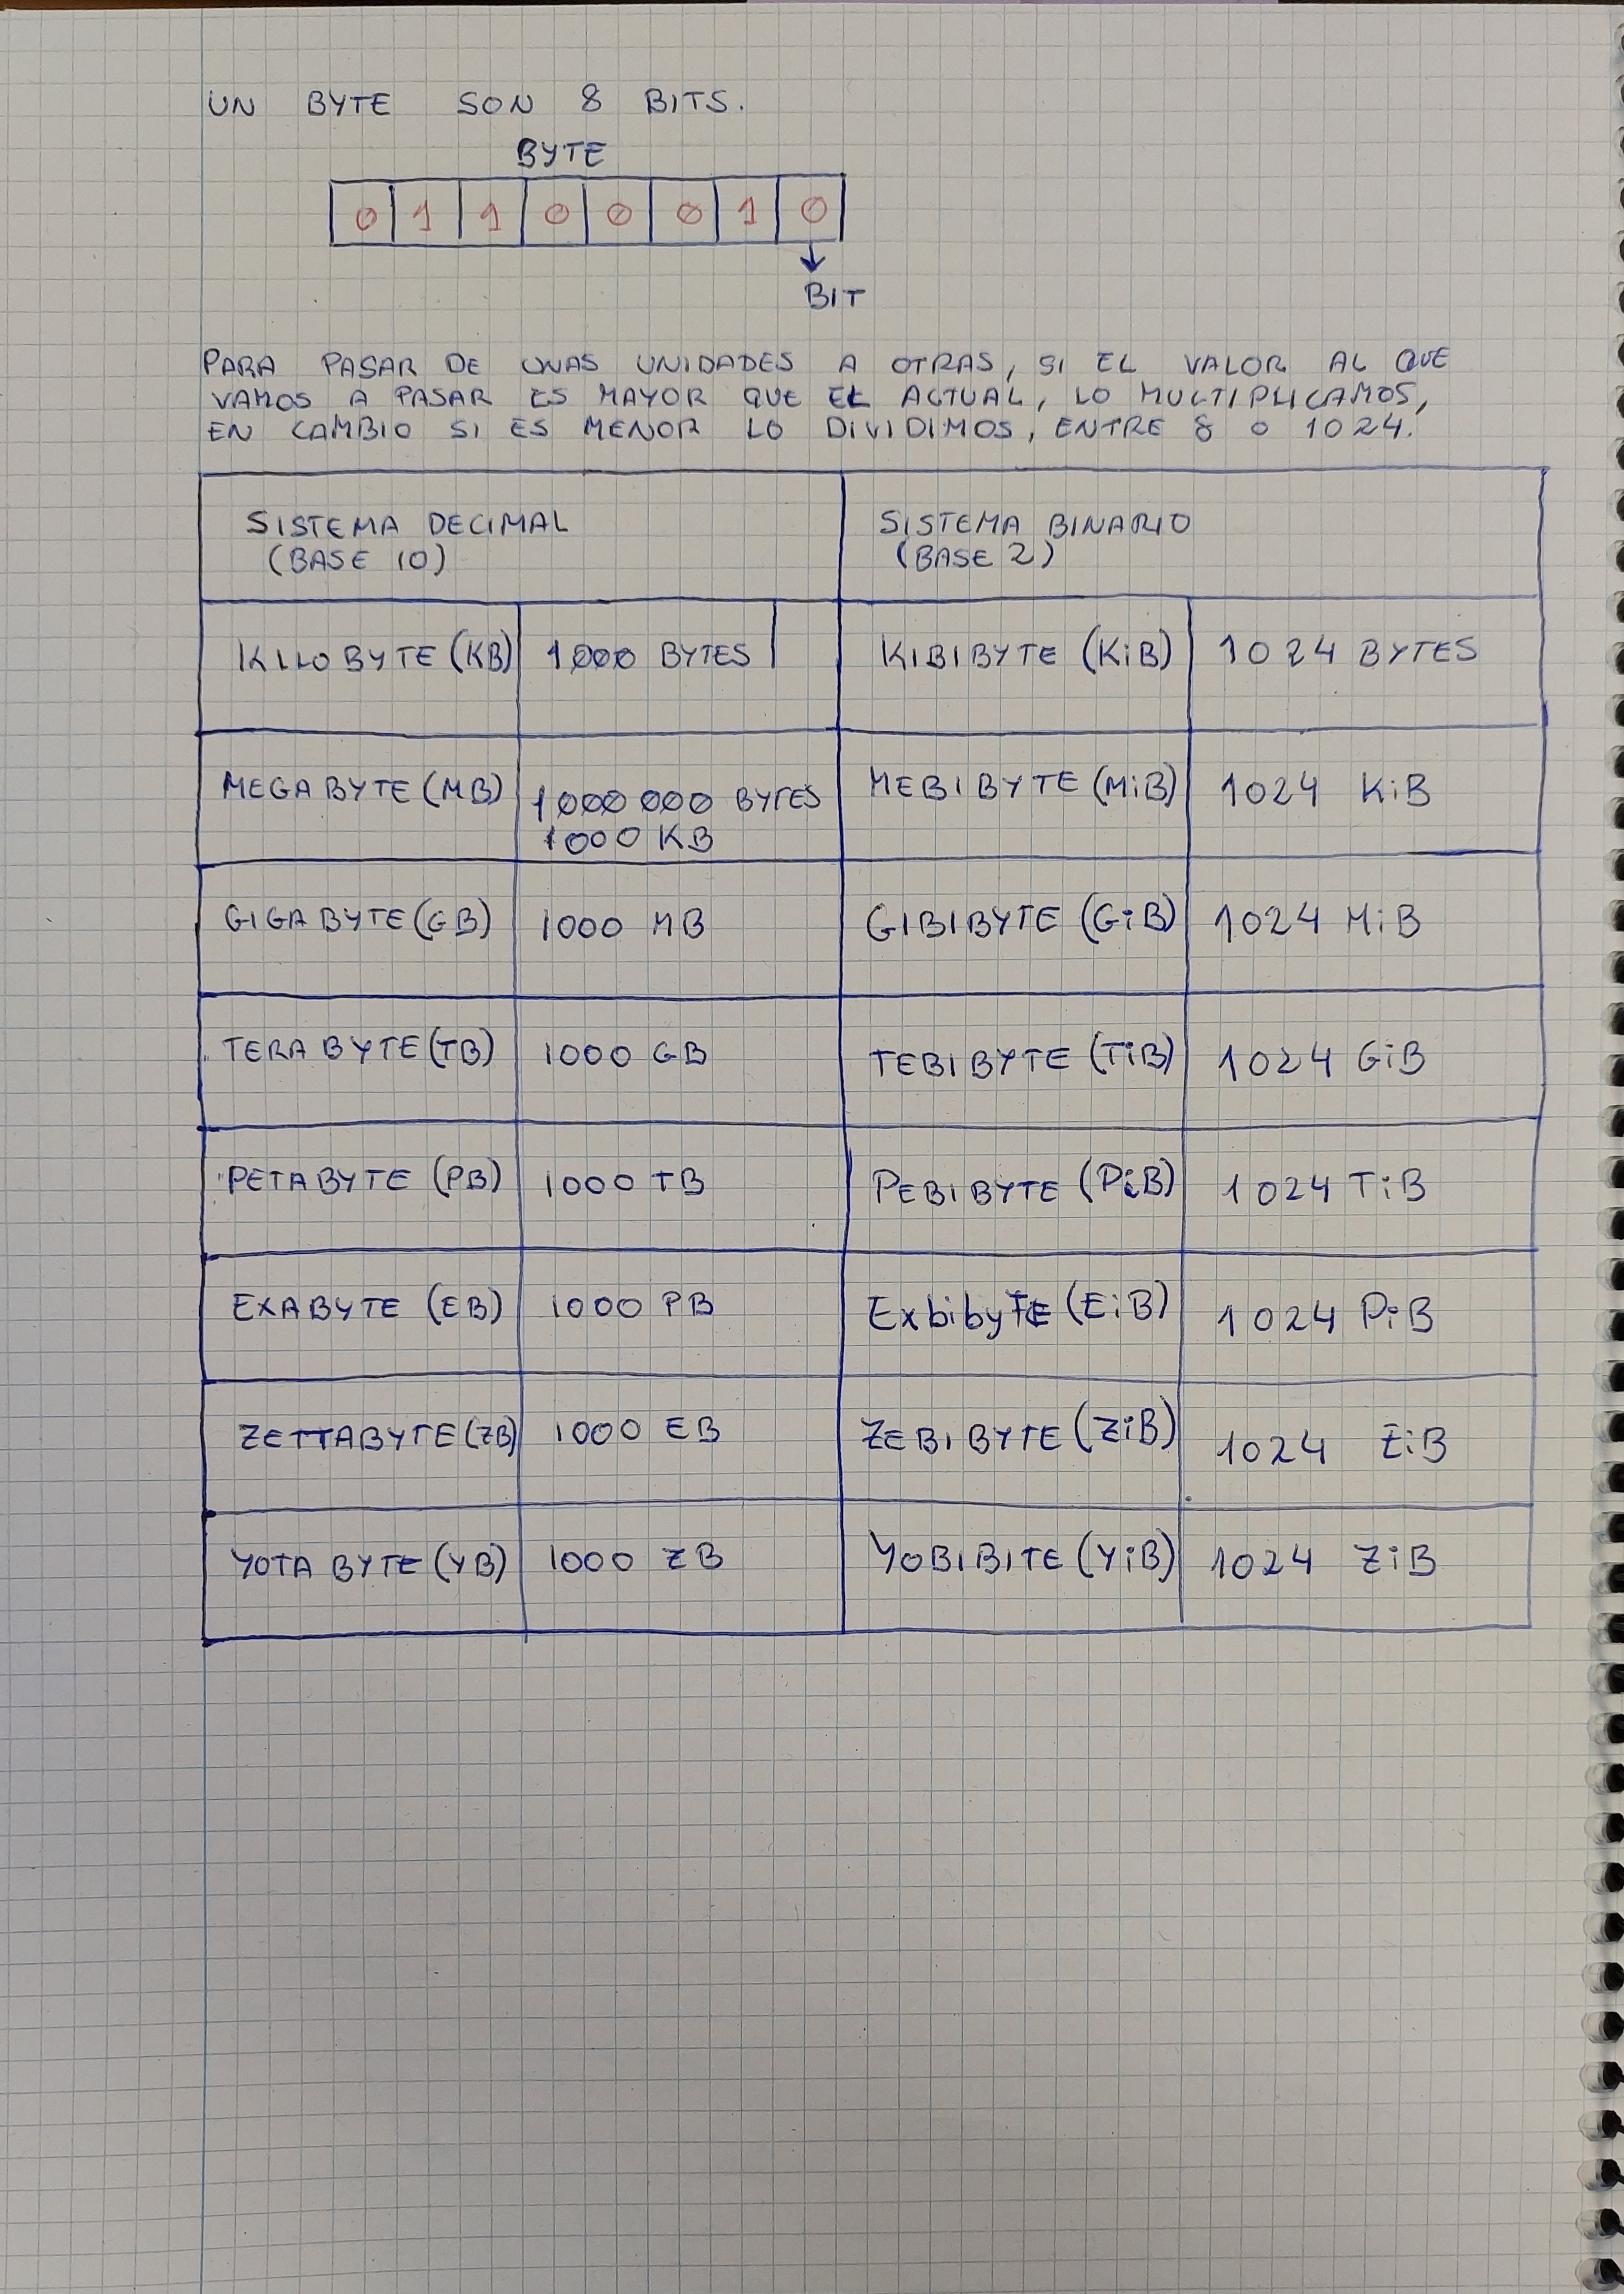 UN BYTE SON 8 BITS.
BYTE
0 1 1 0 0 0 1 0
BIT
PARA PASAR DE UNAS UNIDADES A OTRAS, SI EL VALOR AL QUE
VAMOS A PASAR ES MAYOR QUE EL ACTUAL, LO MULTIPLICAMOS,
EN CAMBIO SI ES MENOR LO DIVIDIMOS, ENTRE 8 O 1024.
SISTEMA DECIMAL
(BASE 10)
SISTEMA BINARIO
(BASE 2)
KILOBYTE (KB) 1000 BYTES KIBIBYTE (KiB) 1024 BYTES
MEGABYTE (MB) 1000 000 BYTES
1000 KB
MEBIBYTE (MiB) 1024 KiB
GIGABYTE (GB) 1000 MB GIBIBYTE (GiB) 1024 MiB
TERABYTE (TB) 1000 GB TEBIBYTE (TiB) 1024 GiB
PETABYTE (PB) 1000 TB PEBIBYTE (PiB) 1024 TiB
EXABYTE (EB) 1000 PB ExbibyTE (EiB) 1024 PiB
ZETTABYTE (ZB) 1000 EB ZEBIBYTE (ZiB) 1024 EiB
YOTABYTE (YB) 1000 ZB YOBIBITE (YiB) 1024 ZiB